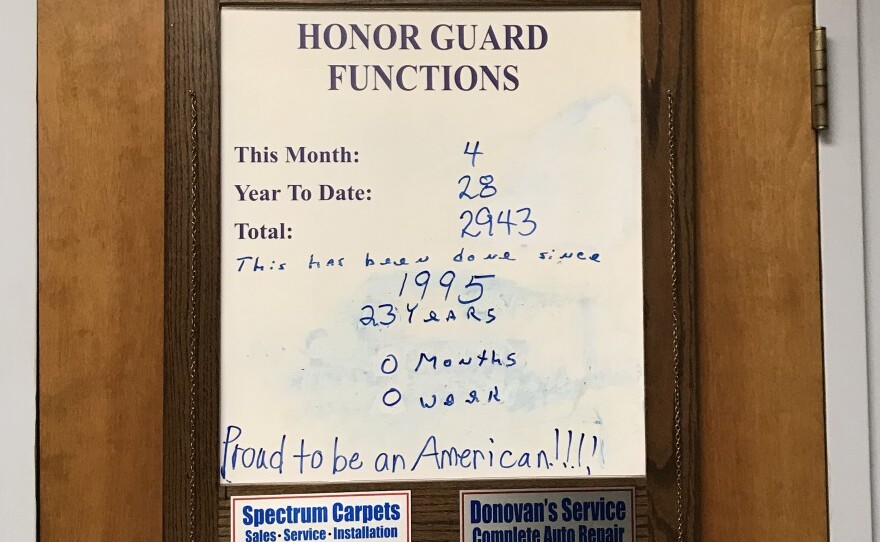 HONOR GUARD
FUNCTIONS
This Month: 4
Year To Date: 28
Total: 2943
This has been done since
1995
23 Years
0 Months
0 week
Proud to be an American!!!!!
Spectrum Carpets
Sales · Service · Installation
Donovan's Service
Complete Auto Repair